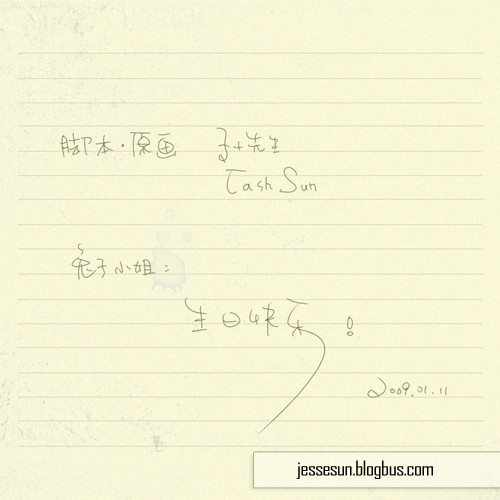 脚本·原画 孙先生
Tash Sun
兔子小姐：
生日快乐！
2009.01.11
jessesun.blogbus.com